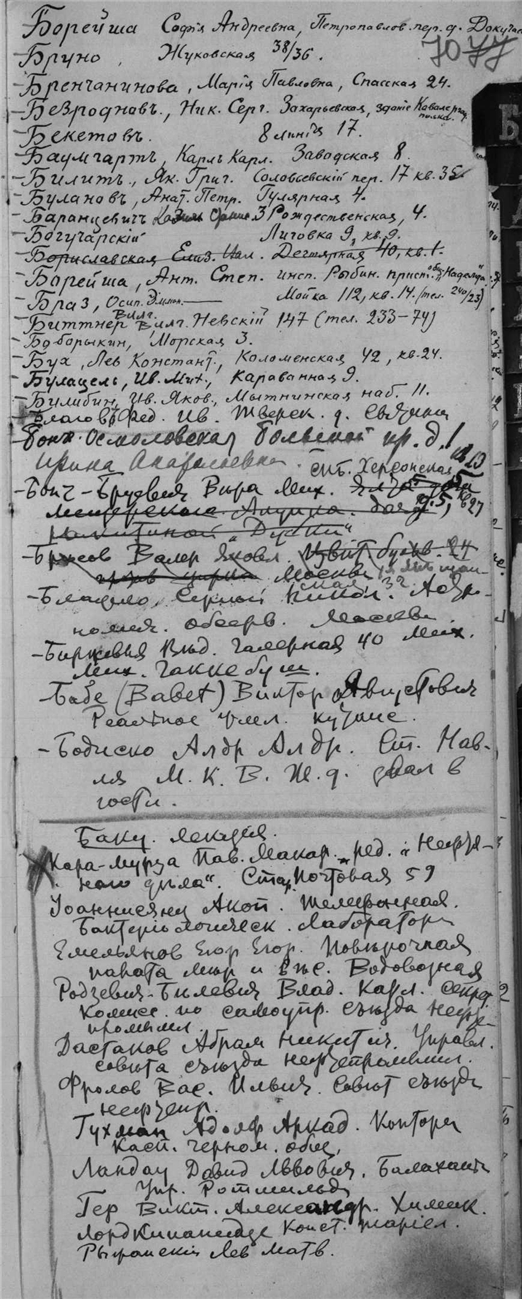 Борейша Софія Андреевна, Петропавлов. пер. д.
7077
–Бруно, Жуковская 38/36.
–Бренчанинова, Марія Павловна, Спасская 24.
–Безродновъ, Ник. Серг. Захарьевская, зданіе Кавалерг. полка.
–Бекетовъ. 8 линія 17.
–Баумгартъ, Карлъ Карл. Заводская 8.
–Билитъ, Як. Григ. Соловьевскій пер. 17 кв. 35
–Булановъ, Анат. Петр. Гулярная 4.
–Баранцевичъ 3 Рождественская, 4.
–Богучарскій Лиговка 9, кв. 9.
–Бориславская Елиз. Дегтярная 40, кв. 1.
–Борейша, Ант. Степ. инсп. Рыбин. присп.
–Браз, Осип. Мойка 112, кв. 14. (тел. 240/23)
–Биттнер Вилг. Вилг. Невскій 147 (тел. 233–74)
–Боборыкин, Морская 3.
–Бух, Лев Констант., Коломенская 42, кв. 24.
–Булацель, Ив. Мих., Караванная 9.
–Булибин, Ив. Яков., Мытнинская наб. 11.
Ѳед. Ив. Тверск. д.
Бонч-Осмоловская Больш пр. д. 1
Ирина Анатольевна. кв 13
–Бонч-Бруевич Вѣра Мих. Спб. Херсонская 5
д. 5, кв 27
–Брюсов Валер Яковл. Цвѣт. бульв. 24
Москва 32
–Блажко, Сергѣй Никол. Астро-
номич. обсерв. Москва.
–Биржевыя Вѣд. Галерная 40 Мих.
Мих. Гаккебуш.
–Бабе (Babet) Виктор Августович
Реальное учил.
–Бодиско Алдр Алдр. Ст. Нав-
ля М. К. В. Ж. д. звал в
гости.
Баку. лекція.
Кара-Мурза Пав. Макар. ред. "Нефтя-
ного дѣла". Стар. Почтовая 59
Іоаннисянц Акоп. Телефонная.
Бактеріологическ. Лаборатор
Емельянов Егор Егор. Повѣрочная
палата мѣр и вѣс. Водовозная
Родзевич-Билевич Влад. Карл. секр.
Комис. по самоупр. съѣзда нефте-
промышл.
Дастаков Абрам Никитич. Управл.
совѣта съѣзда нефтепромышл.
Фролов Вас. Ильич. Совѣт съѣзда
нефтепр.
Гухман Адольф Аркад. Контора
Касп. черном. общ.
Ландау Давид Львович. Балаханы
Упр. Ротшильда
Гер Викт. Александр. Химик.
Лордкипанидзе Конст.
Рыжанскій Лев Матв.